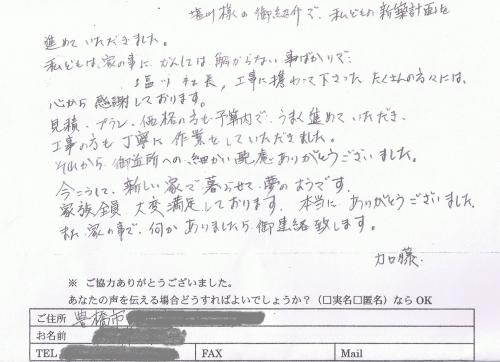 塩川様の御紹介で、私どもの新築計画を
進めていただきました。
私どもは、家の事に、かんしては解からない事ばかりで、
塩川社長，工事に携わって下さった たくさんの方々には、
心から感謝しております。
見積・プラン・価格の方も予算内で、うまく進めていただき、
工事の方も丁寧に作業をしていただきました。
それから御近所への細かい配慮ありがとうございました。
今こうして、新しい家で暮らせて夢のようです。
家族全員 大変満足しております。本当に ありがとうございました。
また家の事で、何か ありましたら御連絡致します。
加藤.
※ ご協力ありがとうございました。
あなたの声を伝える場合どうすればよいでしょうか？（□実名□匿名）なら OK
ご住所 豊橋市
お名前
TEL FAX Mail